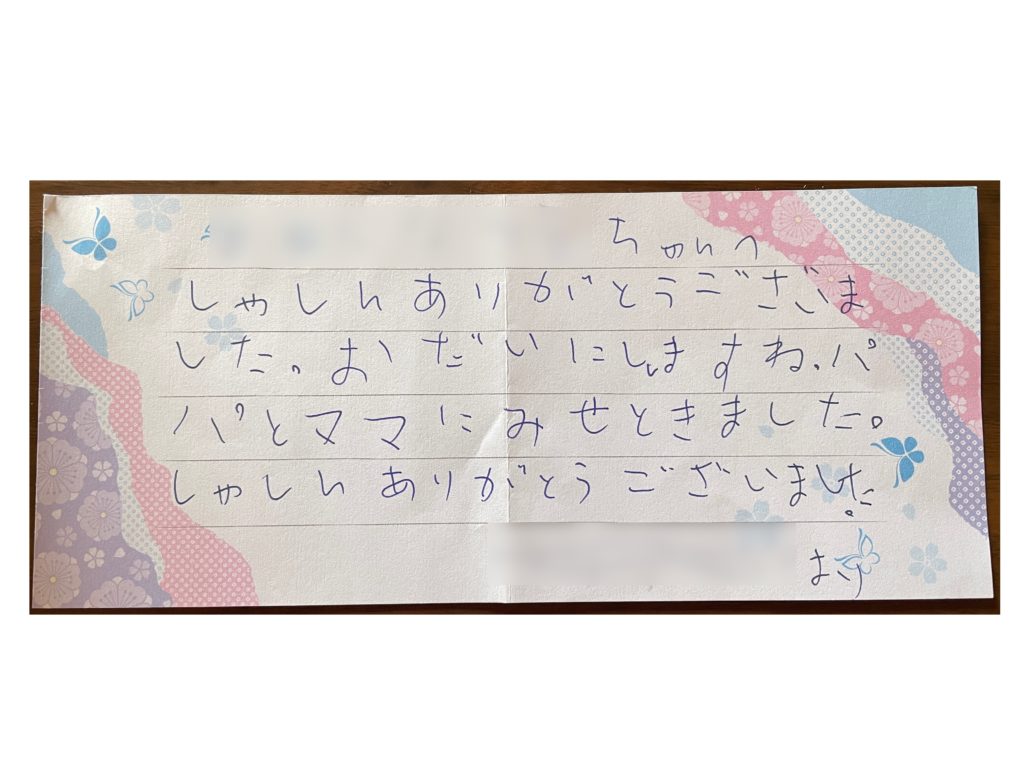 ちゃんへ
しゃしんありがとうございま
した。おだいにしますね。パ
パとママにみせときました。
しゃしんありがとうございました。
より